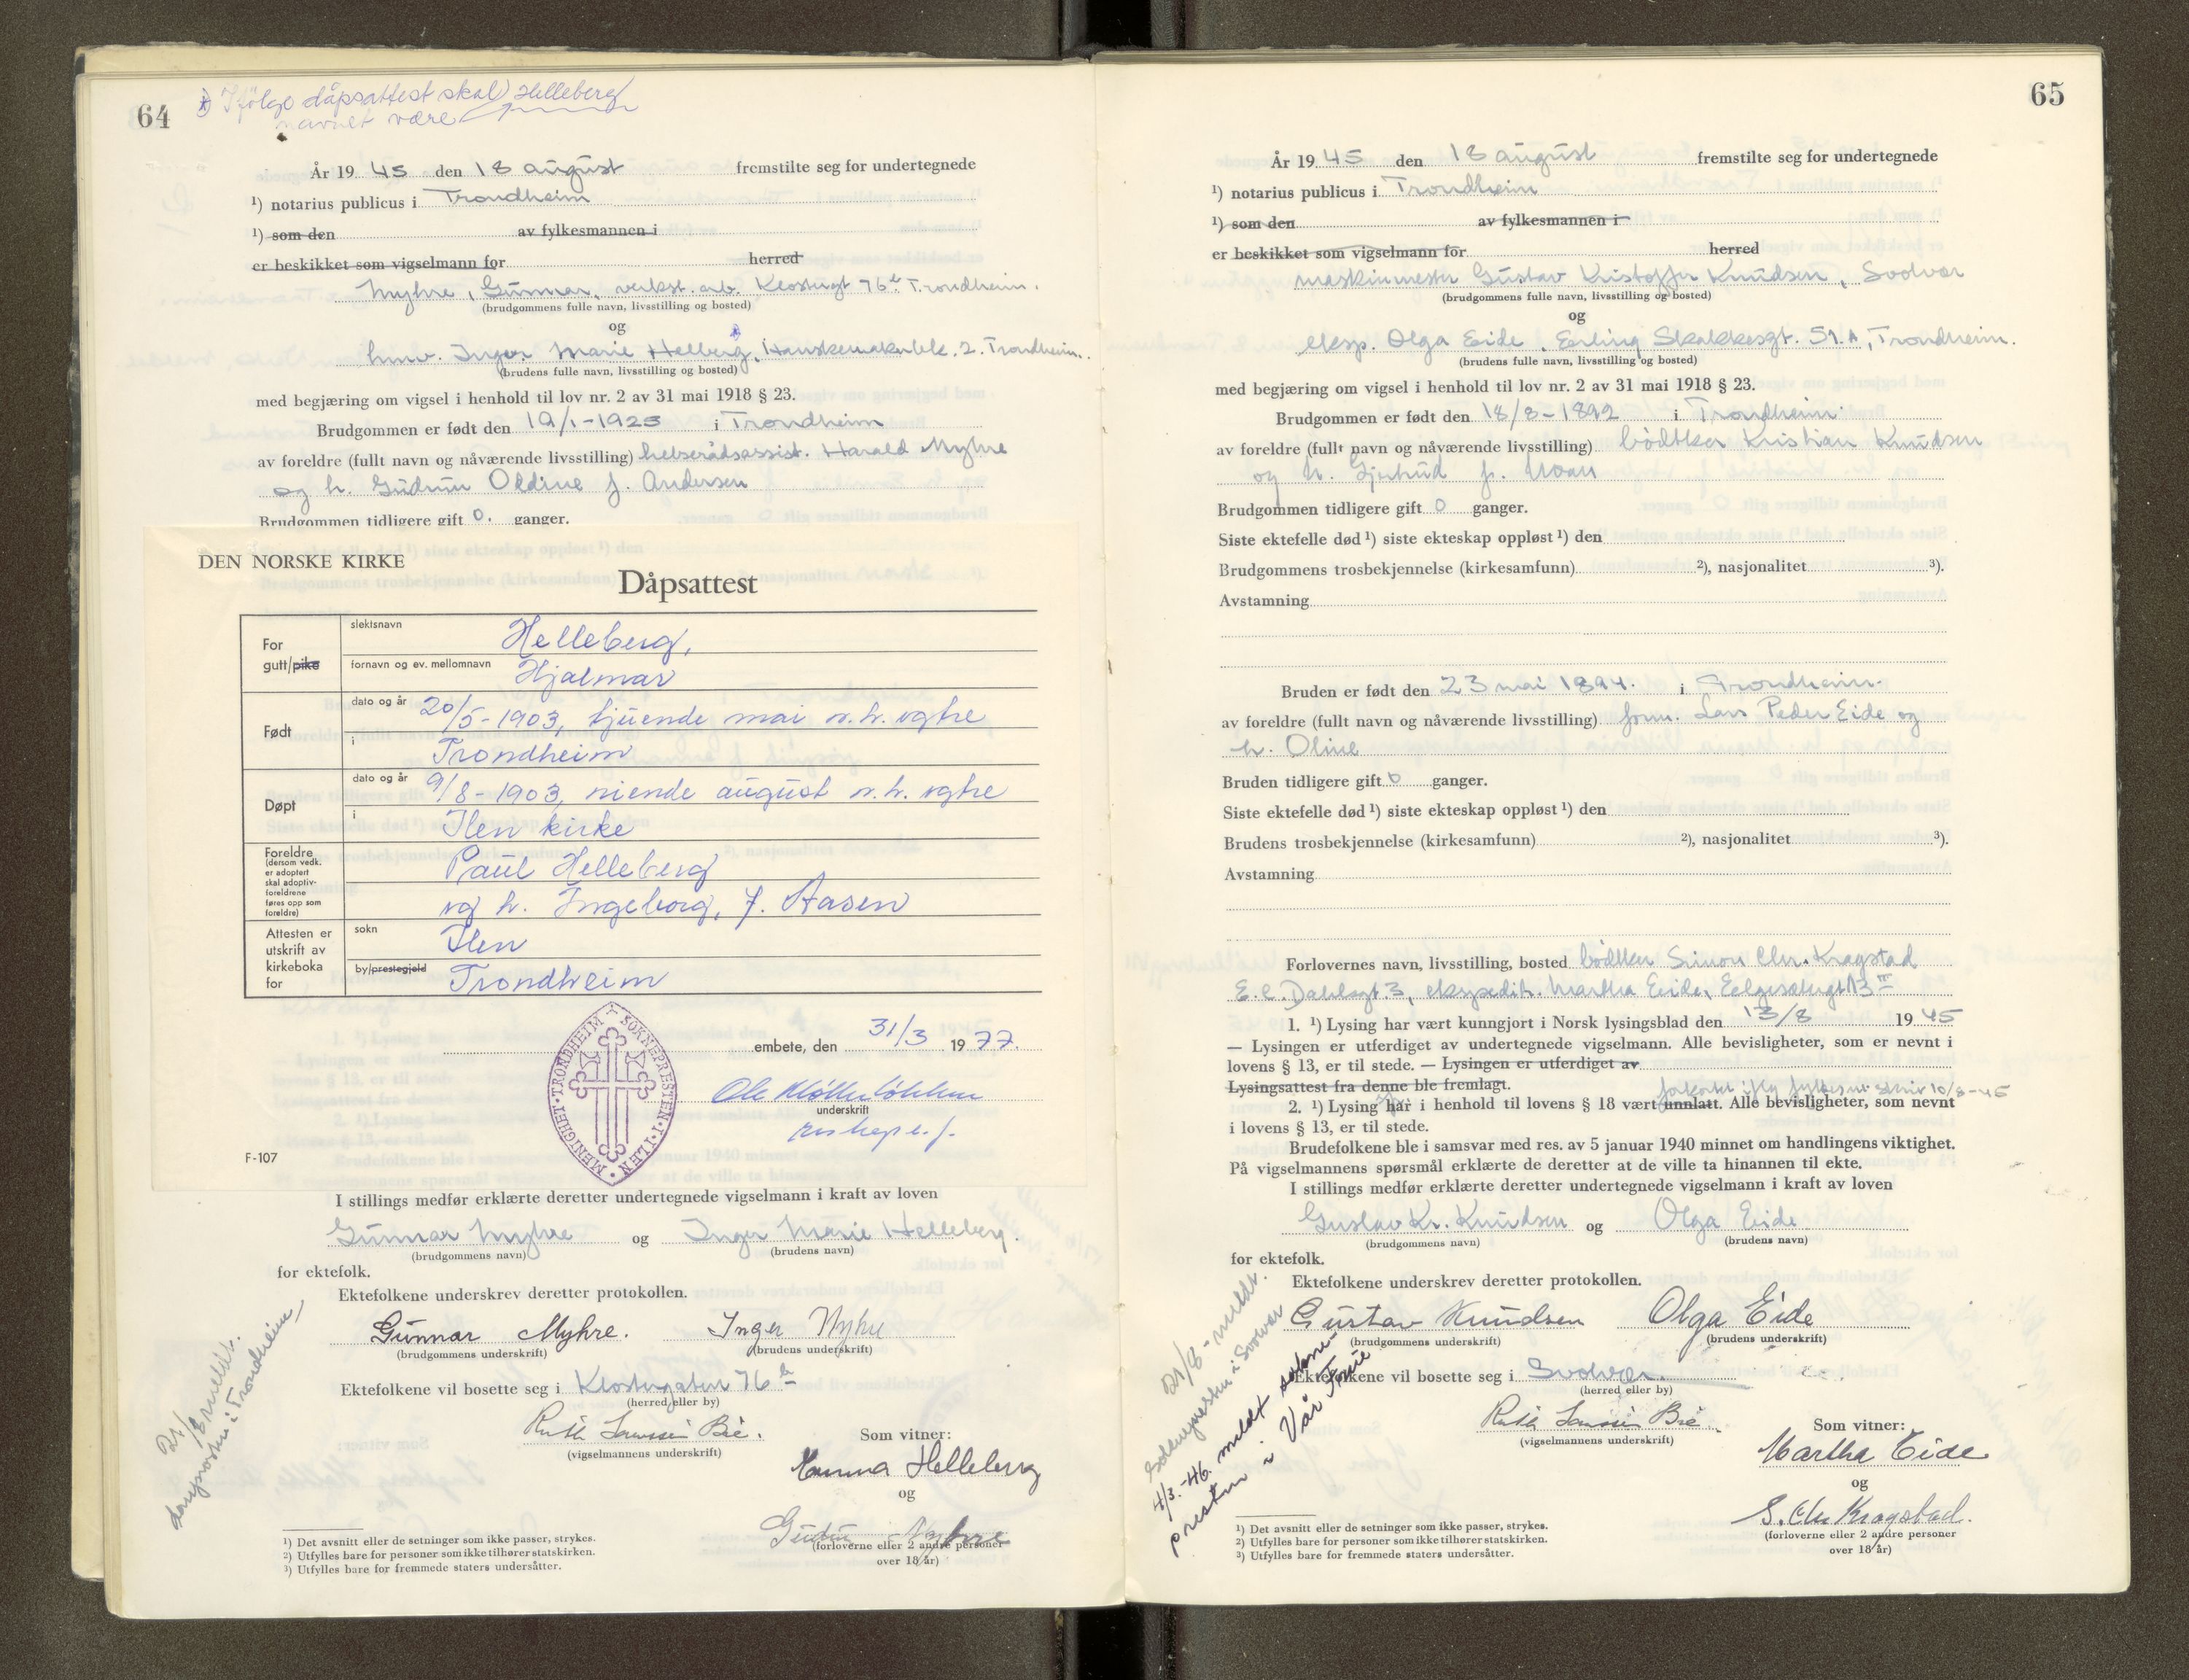 64
x) Ifølge dåpsattest skal Helleberg
navnet være
År 19 45 den 18 august fremstilte seg for undertegnede
¹) notarius publicus i Trondheim
¹) som den av fylkesmannen i
er beskikket som vigselmann for herred
Myhre, Gunnar, verkst. arb. Klostergt 76b Trondheim.
(brudgommens fulle navn, livsstilling og bosted)
og
hmv. Inger Marie Helberg, Hanskemakerbk. 2. Trondheim.
(brudens fulle navn, livsstilling og bosted)
med begjæring om vigsel i henhold til lov nr. 2 av 31 mai 1918 § 23.
Brudgommen er født den 19/1-1923 i Trondheim
av foreldre (fullt navn og nåværende livsstilling) helserådsassist. Harald Myhre
og h. Gudrun Oldine f. Andersen
Brudgommen tidligere gift 0. ganger.
DEN NORSKE KIRKE
Dåpsattest
For gutt/pike
slektsnavn Helleberg,
fornavn og ev. mellomnavn Hjalmar
Født
dato og år 20/5-1903, tjuende mai n.h. ogtre
i Trondheim
Døpt
dato og år 9/8-1903, niende august n.h. ogtre
i Ilen kirke
Foreldre (dersom vedk. er adoptert skal adoptiv-foreldrene føres opp som foreldre)
Paul Helleberg
og h. Ingeborg, f. Aasen
Attesten er utskrift av kirkeboka for
sokn Ilen
by/prestegjeld Trondheim
SOKNEPRESTEN I ILEN MENIGHET TRONDHEIM
embete, den 31/3 1977.
Ole
underskrift
F-107
I stillings medfør erklærte deretter undertegnede vigselmann i kraft av loven
Gunnar Myhre og Inger Marie Helleberg.
(brudgommens navn) (brudens navn)
for ektefolk.
Ektefolkene underskrev deretter protokollen.
Gunnar Myhre. Inger Myhre
(brudgommens underskrift) (brudens underskrift)
Ektefolkene vil bosette seg i Klostergaten 76b
(herred eller by)
Ruth Bie.
(vigselmannens underskrift)
Som vitner:
Emma Helleberg
og
Gudrun Myhre
(forloverne eller 2 andre personer
over 18 år)
21/8 meldt.
i Trondheim
¹) Det avsnitt eller de setninger som ikke passer, strykes.
²) Utfylles bare for personer som ikke tilhører statskirken.
³) Utfylles bare for fremmede staters undersåtter.
65
År 19 45 den 18 august fremstilte seg for undertegnede
¹) notarius publicus i Trondheim
¹) som den av fylkesmannen i
er beskikket som vigselmann for herred
maskinmester Gustav Kristoffer Knudsen, Svolvær
(brudgommens fulle navn, livsstilling og bosted)
og
eksp. Olga Eide, Erling Skakkesgt. 51.A, Trondheim.
(brudens fulle navn, livsstilling og bosted)
med begjæring om vigsel i henhold til lov nr. 2 av 31 mai 1918 § 23.
Brudgommen er født den 18/8-1892 i Trondheim
av foreldre (fullt navn og nåværende livsstilling) bødtker Kristian Knudsen
og h. Gjertrud f. Moan
Brudgommen tidligere gift 0 ganger.
Siste ektefelle død ¹) siste ekteskap oppløst ¹) den
Brudgommens trosbekjennelse (kirkesamfunn) ²), nasjonalitet ³).
Avstamning
Bruden er født den 23 mai 1894. i Trondheim.
av foreldre (fullt navn og nåværende livsstilling) form. Lars Peder Eide og
h. Oline
Bruden tidligere gift 0 ganger.
Siste ektefelle død ¹) siste ekteskap oppløst ¹) den
Brudens trosbekjennelse (kirkesamfunn) ²), nasjonalitet ³).
Avstamning
Forlovernes navn, livsstilling, bosted bødtker Simon Chr. Kragstad
E.C. Dahlsgt. 3, ekspedit. Martha Eide, Eelgesætergt 13 II
1. ¹) Lysing har vært kunngjort i Norsk lysingsblad den 13/8 1945
— Lysingen er utferdiget av undertegnede vigselmann. Alle bevisligheter, som er nevnt i
lovens § 13, er til stede. — Lysingen er utferdiget av
Lysingsattest fra denne ble fremlagt.
forkortet iflg fylkesm. skriv 10/8-45
2. ¹) Lysing har i henhold til lovens § 18 vært unnlatt. Alle bevisligheter, som nevnt
i lovens § 13, er til stede.
Brudefolkene ble i samsvar med res. av 5 januar 1940 minnet om handlingens viktighet.
På vigselmannens spørsmål erklærte de deretter at de ville ta hinannen til ekte.
I stillings medfør erklærte deretter undertegnede vigselmann i kraft av loven
Gustav Kr. Knudsen og Olga Eide
(brudgommens navn) (brudens navn)
for ektefolk.
Ektefolkene underskrev deretter protokollen.
Gustav Knudsen Olga Eide
(brudgommens underskrift) (brudens underskrift)
Ektefolkene vil bosette seg i Svolvær.
(herred eller by)
Ruth Bie
(vigselmannens underskrift)
Som vitner:
Martha Eide
og
S. Chr Kragstad.
(forloverne eller 2 andre personer
over 18 år)
21/8 meldt.
Soknepresten i Svolvær
4/3.-46. meldt sokne-
presten i Vår Frue
¹) Det avsnitt eller de setninger som ikke passer, strykes.
²) Utfylles bare for personer som ikke tilhører statskirken.
³) Utfylles bare for fremmede staters undersåtter.